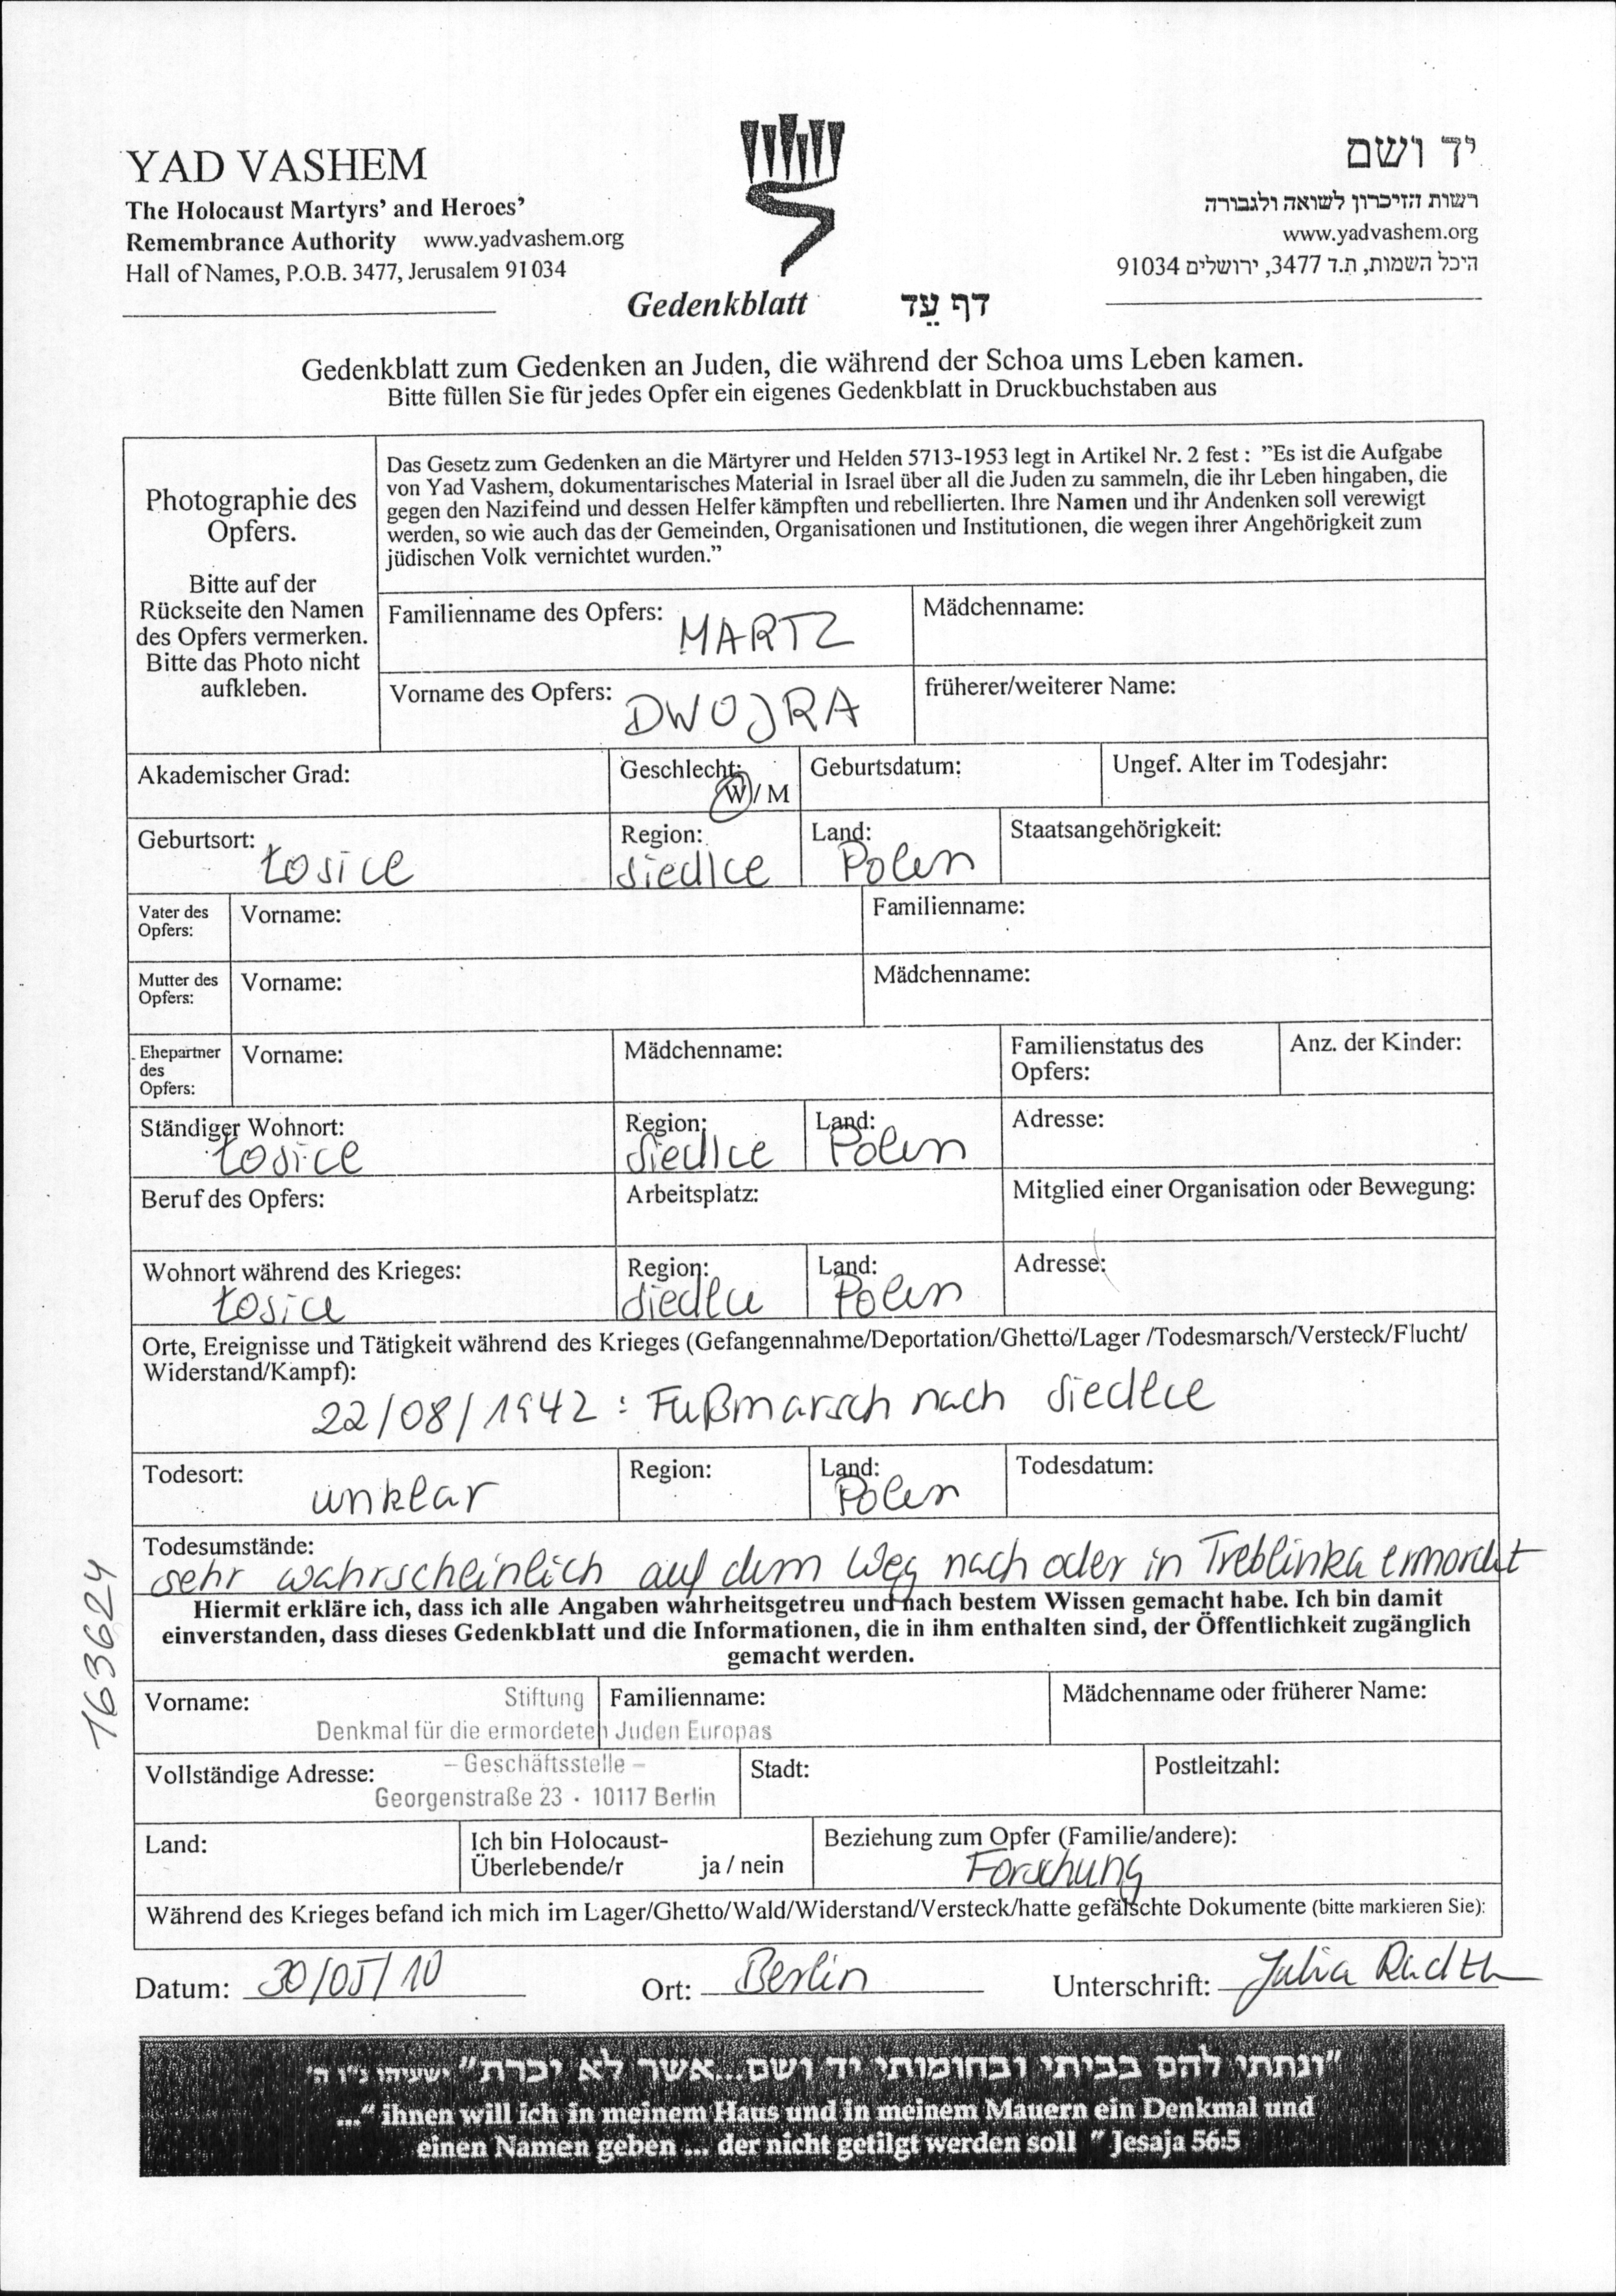 YAD VASHEM
The Holocaust Martyrs' and Heroes'
Remembrance Authority www.yadvashem.org
Hall of Names, P.O.B. 3477, Jerusalem 91034
יד ושם
רשות הזיכרון לשואה ולגבורה
www.yadvashem.org
היכל השמות, ת.ד 3477, ירושלים 91034
Gedenkblatt דף עֵד
Gedenkblatt zum Gedenken an Juden, die während der Schoa ums Leben kamen.
Bitte füllen Sie für jedes Opfer ein eigenes Gedenkblatt in Druckbuchstaben aus
Photographie des
Opfers.
Bitte auf der
Rückseite den Namen
des Opfers vermerken.
Bitte das Photo nicht
aufkleben.
Das Gesetz zum Gedenken an die Märtyrer und Helden 5713-1953 legt in Artikel Nr. 2 fest : "Es ist die Aufgabe
von Yad Vashem, dokumentarisches Material in Israel über all die Juden zu sammeln, die ihr Leben hingaben, die
gegen den Nazifeind und dessen Helfer kämpften und rebellierten. Ihre Namen und ihr Andenken soll verewigt
werden, so wie auch das der Gemeinden, Organisationen und Institutionen, die wegen ihrer Angehörigkeit zum
jüdischen Volk vernichtet wurden."
Familienname des Opfers: MARTZ Mädchenname:
Vorname des Opfers: DWOJRA früherer/weiterer Name:
Akademischer Grad: Geschlecht: W / M Geburtsdatum: Ungef. Alter im Todesjahr:
Geburtsort: Łosice Region: Siedlce Land: Polen Staatsangehörigkeit:
Vater des Opfers: Vorname: Familienname:
Mutter des Opfers: Vorname: Mädchenname:
Ehepartner des Opfers: Vorname: Mädchenname: Familienstatus des Opfers: Anz. der Kinder:
Ständiger Wohnort: Łosice Region: Siedlce Land: Polen Adresse:
Beruf des Opfers: Arbeitsplatz: Mitglied einer Organisation oder Bewegung:
Wohnort während des Krieges: Łosice Region: Siedlce Land: Polen Adresse:
Orte, Ereignisse und Tätigkeit während des Krieges (Gefangennahme/Deportation/Ghetto/Lager /Todesmarsch/Versteck/Flucht/
Widerstand/Kampf):
22/08/1942 : Fußmarsch nach Siedlce
Todesort: unklar Region: Land: Polen Todesdatum:
Todesumstände:
sehr wahrscheinlich auf dem Weg nach oder in Treblinka ermordet
Hiermit erkläre ich, dass ich alle Angaben wahrheitsgetreu und nach bestem Wissen gemacht habe. Ich bin damit
einverstanden, dass dieses Gedenkblatt und die Informationen, die in ihm enthalten sind, der Öffentlichkeit zugänglich
gemacht werden.
163624
Vorname: Stiftung Familienname: Mädchenname oder früherer Name:
Denkmal für die ermordeten Juden Europas
Vollständige Adresse: – Geschäftsstelle – Stadt: Postleitzahl:
Georgenstraße 23 · 10117 Berlin
Land: Ich bin Holocaust-Überlebende/r ja / nein Beziehung zum Opfer (Familie/andere):
Forschung
Während des Krieges befand ich mich im Lager/Ghetto/Wald/Widerstand/Versteck/hatte gefälschte Dokumente (bitte markieren Sie):
Datum: 30/05/10 Ort: Berlin Unterschrift: Julia
"ונתתי להם בביתי ובחומותי יד ושם...אשר לא יכרת" ישעיהו נ"ו ה'
..." ihnen will ich in meinem Haus und in meinem Mauern ein Denkmal und
einen Namen geben ... der nicht getilgt werden soll " Jesaja 56:5